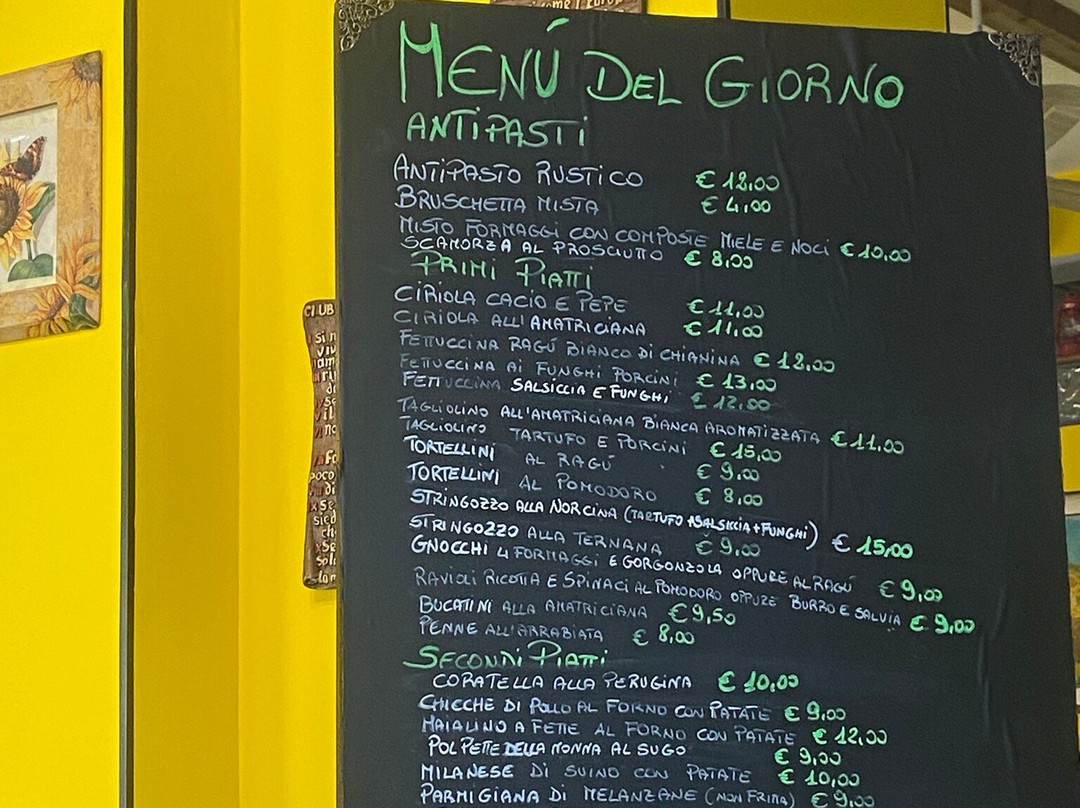 MENÚ DEL GIORNO
ANTIPASTI
ANTIPASTO RUSTICO € 12,00
BRUSCHETTA MISTA € 4,00
MISTO FORMAGGI CON COMPOSTE MIELE E NOCI € 10,00
SCAMORZA AL PROSCIUTTO € 8,00
PRIMI PIATTI
CIRIOLA CACIO E PEPE € 11,00
CIRIOLA ALL'AMATRICIANA € 11,00
FETTUCCINA RAGÚ BIANCO DI CHIANINA € 12,00
FETTUCCINA AI FUNGHI PORCINI € 13,00
FETTUCCINA SALSICCIA E FUNGHI € 12,00
TAGLIOLINO ALL'AMATRICIANA BIANCA AROMATIZZATA € 11,00
TAGLIOLINO TARTUFO E PORCINI € 15,00
TORTELLINI AL RAGÚ € 9,00
TORTELLINI AL POMODORO € 8,00
STRINGOZZO ALLA NORCINA (TARTUFO + SALSICCIA + FUNGHI) € 15,00
STRINGOZZO ALLA TERNANA € 9,00
GNOCCHI 4 FORMAGGI E GORGONZOLA OPPURE AL RAGÚ € 9,00
RAVIOLI RICOTTA E SPINACI AL POMODORO OPPURE BURRO E SALVIA € 9,00
BUCATINI ALLA AMATRICIANA € 9,50
PENNE ALL'ARRABIATA € 8,00
SECONDI PIATTI
CORATELLA ALLA PERUGINA € 10,00
CHICCHE DI POLLO AL FORNO CON PATATE € 9,00
MAIALINO A FETTE AL FORNO CON PATATE € 12,00
POLPETTE DELLA NONNA AL SUGO € 9,00
MILANESE DI SUINO CON PATATE € 10,00
PARMIGIANA DI MELANZANE (NON FRITTA) € 9,00
CLUB